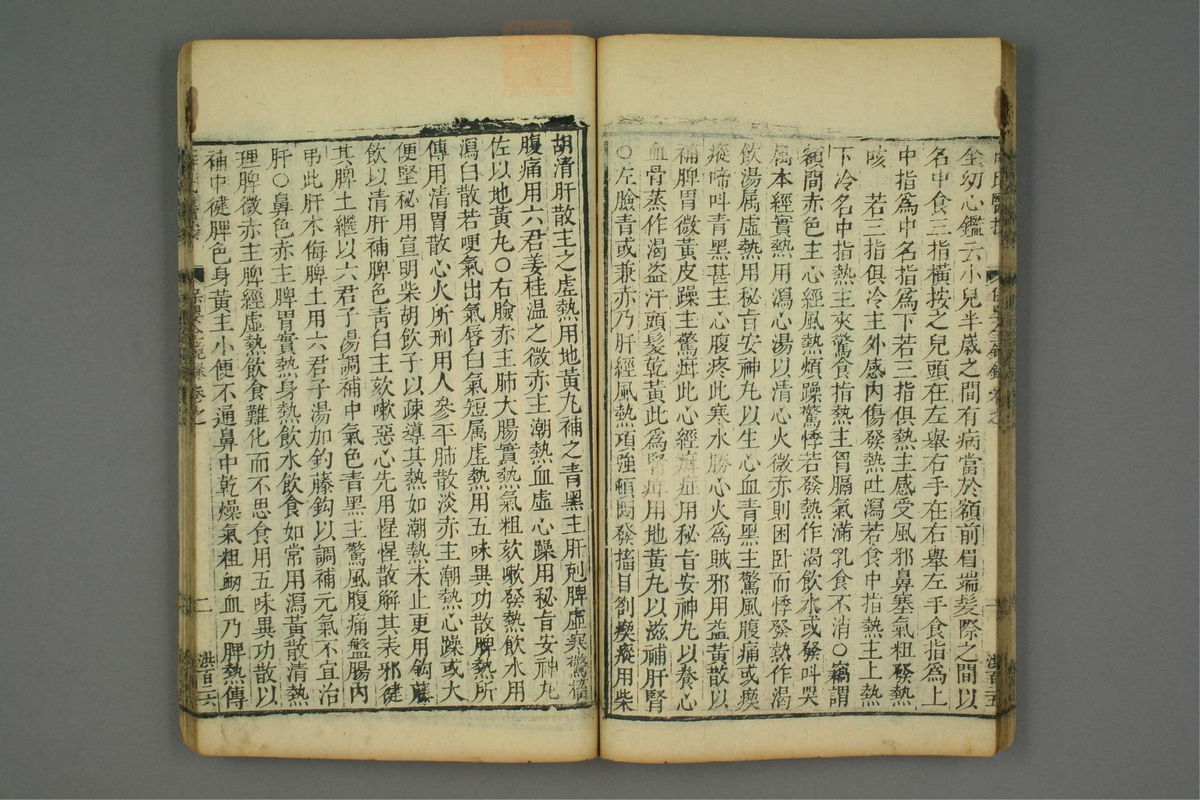 全幼心鑑云小兒半歲之間有病當於額前眉端髮際之間以
名中食三指橫按之兒頭在左舉右手在右舉左手食指爲上
中指爲中名指爲下若三指俱熱主感受風邪鼻塞氣粗發熱
咳 若三指俱冷主外感內傷發熱吐瀉若食中指熱主上熱
下冷名中指熱主夾驚食指熱主胃膈氣滿乳食不消○竊謂
額間赤色主心經風熱煩躁驚悸若發熱作渴飲水或發叫哭
属本經實熱用瀉心湯以清心火微赤則困卧而悸發熱作渴
飲湯属虛熱用秘旨安神丸以生心血青黑主驚風腹痛或瘈
瘲啼叫青黑甚主心腹疼此寒水勝心火爲賊邪用益黃散以
補脾胃微黃皮躁主驚疳此心經疳症用秘旨安神丸以養心
血骨蒸作渴盜汗頭髮乾黃此爲腎疳用地黃丸以滋補肝腎
○左臉青或兼赤乃肝經風熱項強頓悶發搐目劄瘈瘲用柴
胡清肝散主之虛熱用地黃丸補之青黑主肝剋脾虛寒驚搐
腹痛用六君姜桂温之微赤主潮熱血虛心躁用秘旨安神丸
佐以地黃丸○右臉赤主肺大腸實熱氣粗欬嗽發熱飲水用
瀉白散若哽氣出氣唇白氣短属虛熱用五味異功散脾熱所
傳用清胃散心火所刑用人參平肺散淡赤主潮熱心躁或大
便堅秘用宣明柴胡飲子以疎導其熱如潮熱未止更用鈎藤
飲以清肝補脾色青白主欬嗽惡心先用惺惺散解其表邪徤
其脾土繼以六君子湯調補中氣色青黑主驚風腹痛盤腸內
弔此肝木侮脾土用六君子湯加釣藤鈎以調補元氣不宜治
肝○鼻色赤主脾胃實熱身熱飲水飲食如常用瀉黃散清熱
理脾微赤主脾經虛熱飲食難化而不思食用五味異功散以
補中徤脾色身黃主小便不通鼻中乾燥氣粗衂血乃脾熱傳
二